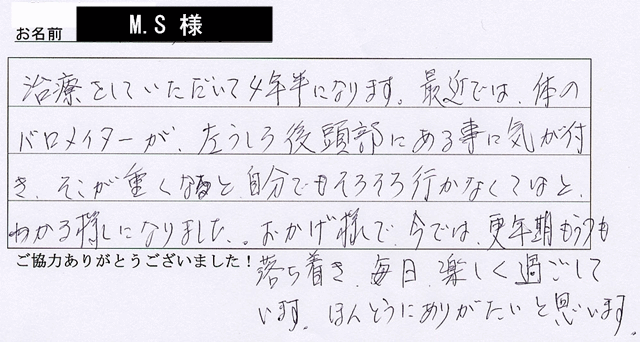 お名前 M.S 様
治療をしていただいて4年半になります。最近では、体の
バロメイターが、左うしろ後頭部にある事に気が付
き、そこが重くなると、自分でもそろそろ行かなくてはと、
わかる様になりました。おかげ様で、今では、更年期もうつも
ご協力ありがとうございました！
落ち着き、毎日、楽しく過ごして
います。ほんとうにありがたいと思います。